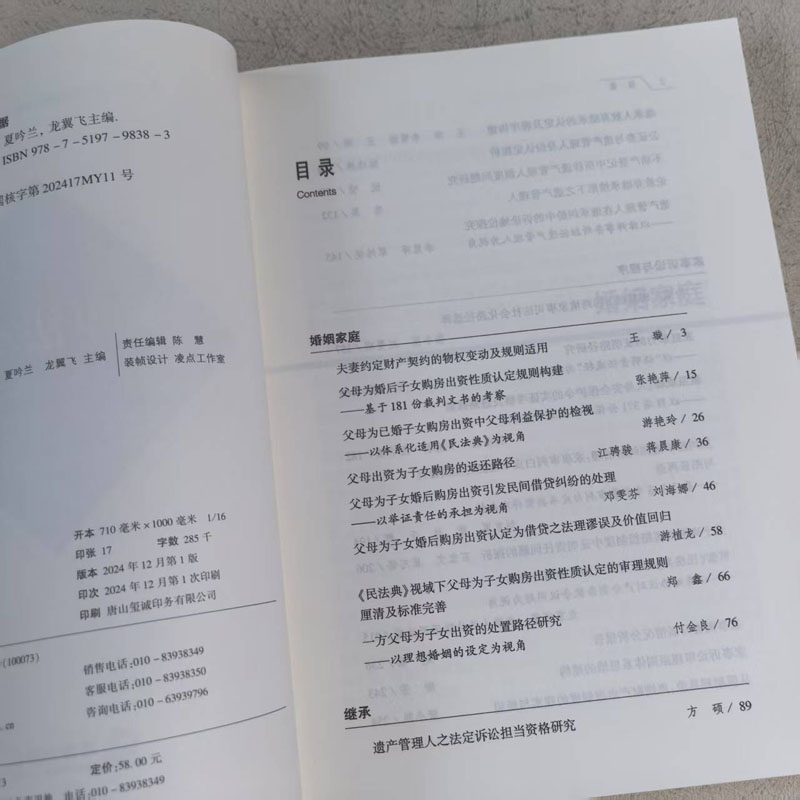 夏吟兰，龙翼飞主编.
ISBN 978-7-5197-9838-3
核字第 202417MY11 号
夏吟兰 龙翼飞 主编
责任编辑 陈 慧
装帧设计 凌点工作室
开本 710 毫米×1000 毫米 1/16
印张 17 字数 285 千
版本 2024 年 12 月第 1 版
印次 2024 年 12 月第 1 次印刷
印刷 唐山玺诚印务有限公司
(100073)
销售电话:010-83938349
客服电话:010-83938350
咨询电话:010-63939796
.cn
定价:58.00 元
目录
Contents
婚姻家庭
夫妻约定财产契约的物权变动及规则适用 王 璇/3
父母为婚后子女购房出资性质认定规则构建
——基于 181 份裁判文书的考察 张艳萍/15
父母为已婚子女购房出资中父母利益保护的检视
——以体系化适用《民法典》为视角 游艳玲/26
父母出资为子女购房的返还路径 江骋骏 蒋晨康/36
父母为子女婚后购房出资引发民间借贷纠纷的处理
——以举证责任的承担为视角 邓雯芬 刘海娜/46
父母为子女婚后购房出资认定为借贷之法理谬误及价值回归 游植龙/58
《民法典》视域下父母为子女购房出资性质认定的审理规则
厘清及标准完善 郑 鑫/66
一方父母为子女出资的处置路径研究
——以理想婚姻的设定为视角 付金良/76
继承
遗产管理人之法定诉讼担当资格研究 方 硕/89